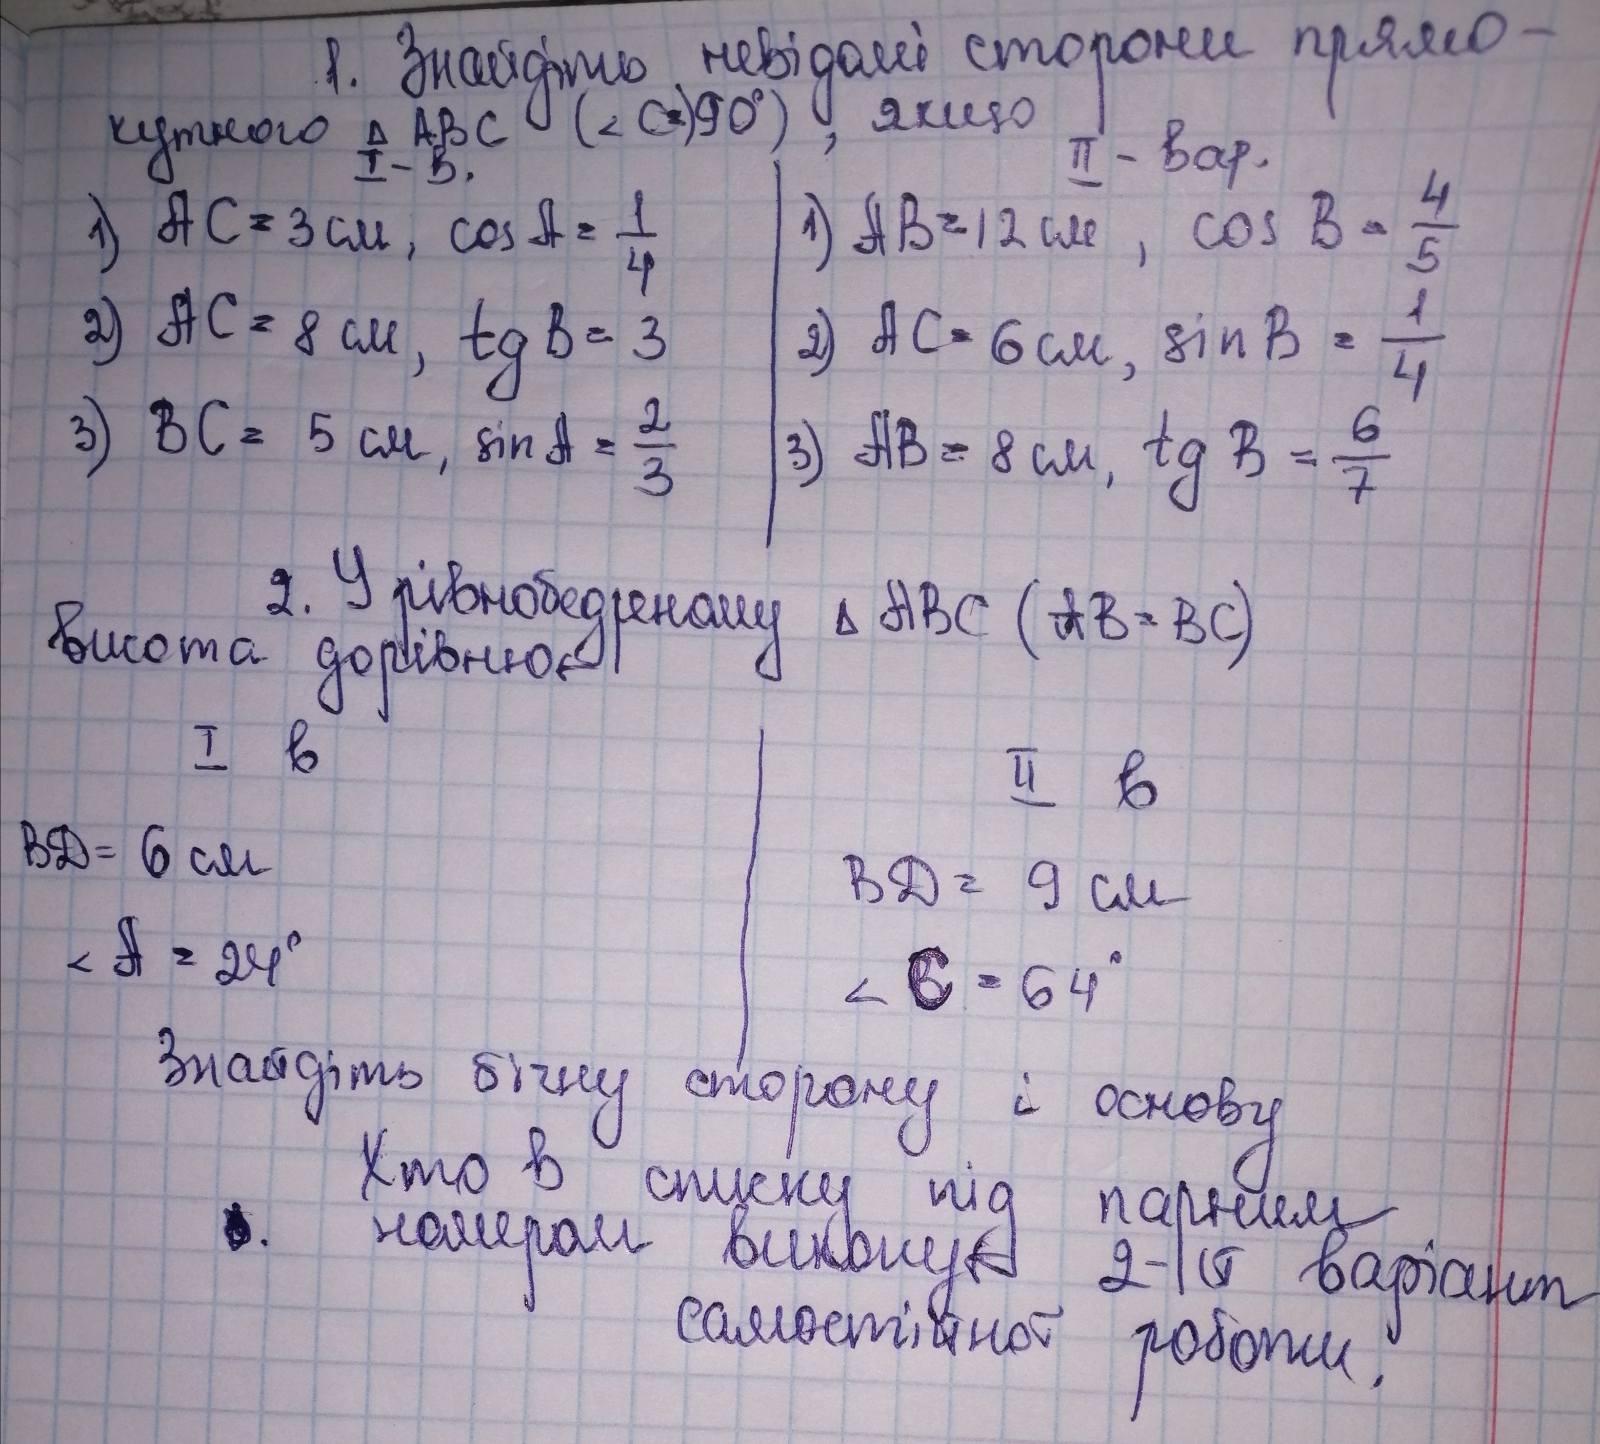 1. Знайдіть невідомі сторони прямо-
кутного Δ ABC (<C=90°), якщо
I - В.
II - вар.
1) AC = 3 см, cos A = 1/4
1) AB = 12 см, cos B = 4/5
2) AC = 8 см, tg B = 3
2) AC = 6 см, sin B = 1/4
3) BC = 5 см, sin A = 2/3
3) AB = 8 см, tg B = 6/7
2. У рівнобедреному Δ ABC (AB = BC)
висота дорівнює
I в
II в
BD = 6 см
BD = 9 см
< A = 24°
< C = 64°
Знайдіть бічну сторону і основу
Хто в списку під парним
номером виконує 2-ій варіант
самостійної роботи.